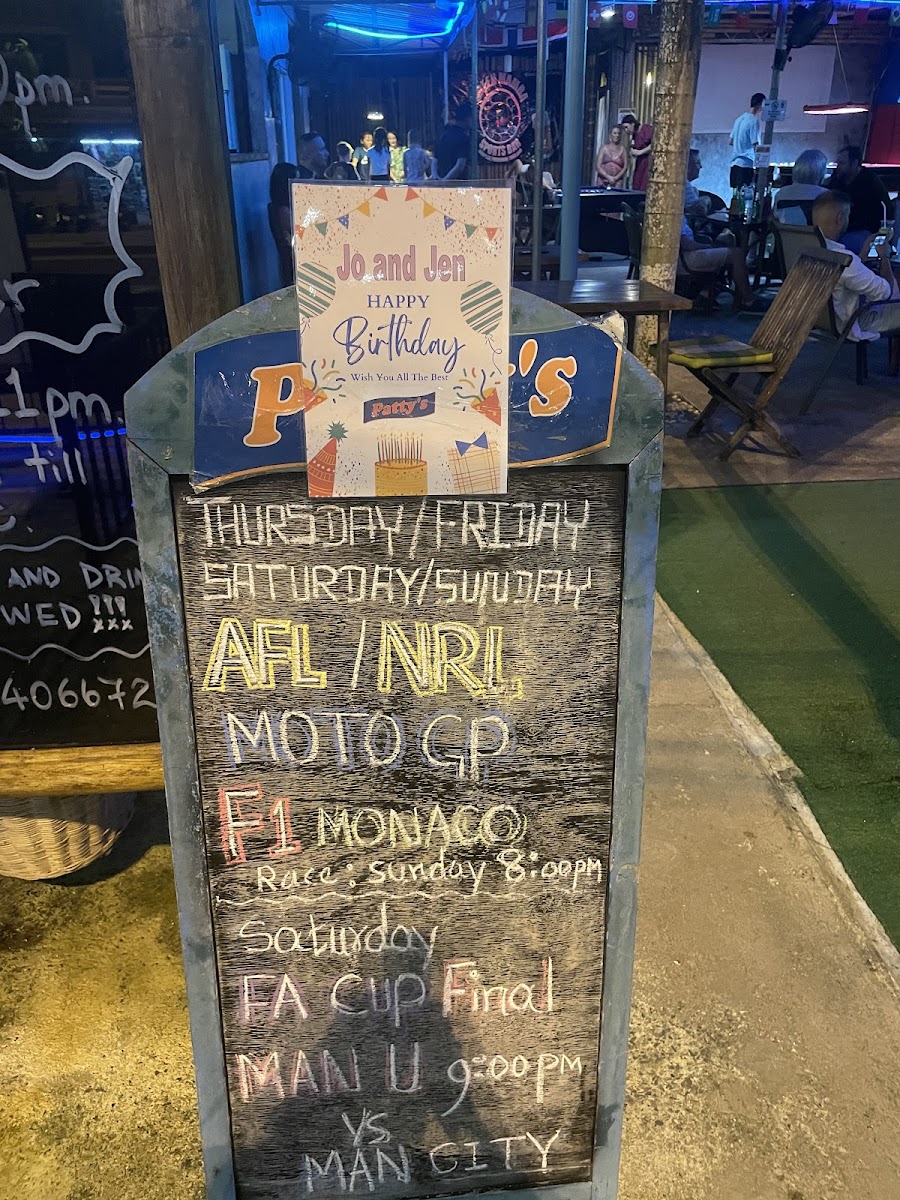 pm.
r
11pm
till
AND DRIN
WED !!!
xxx
406672
SPORTS BAR
Jo and Jen
HAPPY
Birthday
Wish You All The Best
Patty's
P 's
THURSDAY/FRIDAY
SATURDAY/SUNDAY
AFL/NRL
MOTO GP
F1 MONACO
Race: Sunday 8:00PM
Saturday
FA CUP Final
MAN U 9:00PM
VS
MAN CITY